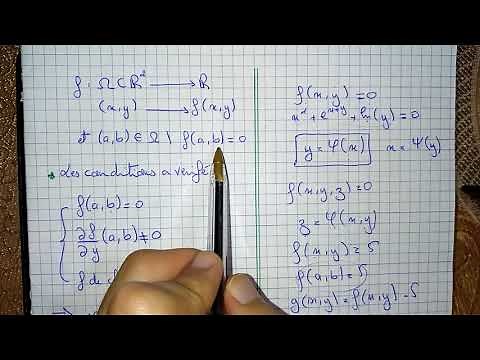 f : Ω ⊂ ℝ² ⟶ ℝ
(x,y) ⟶ f(x,y)
et (a,b) ∈ Ω \ f(a,b) = 0
Les conditions a vérifié
f(a,b) = 0
∂f/∂y (a,b) ≠ 0
f de cl
f(x,y) = 0
+ e^{x+y} + ln(y) = 0
y = φ(x) x = Ψ(y)
f(x,y,z) = 0
z = φ(x,y)
f(x,y) = 5
f(a,b) = 5
g(x,y) = f(x,y) - 5